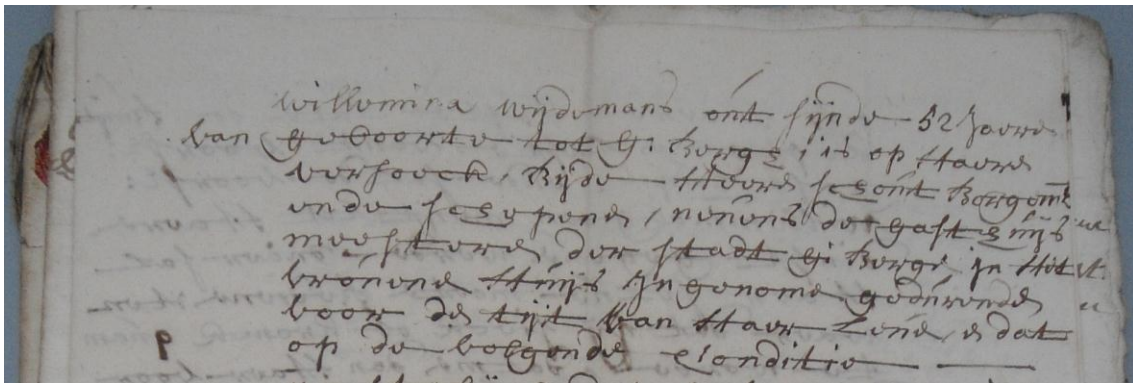 Willemina Wijdemans out sijnde 52 Jaere
van geboorte tot G: Berge, is op Haere
versoeck, Bijde Heere schout Borgemrs
ende schepene, nevens de gasthuijs
meestere der stadt G: Berge in Het
vrouwe Huijs Ingenome gedurende
voor de tijt van Haer Leve, e dat
op de volgende Conditie